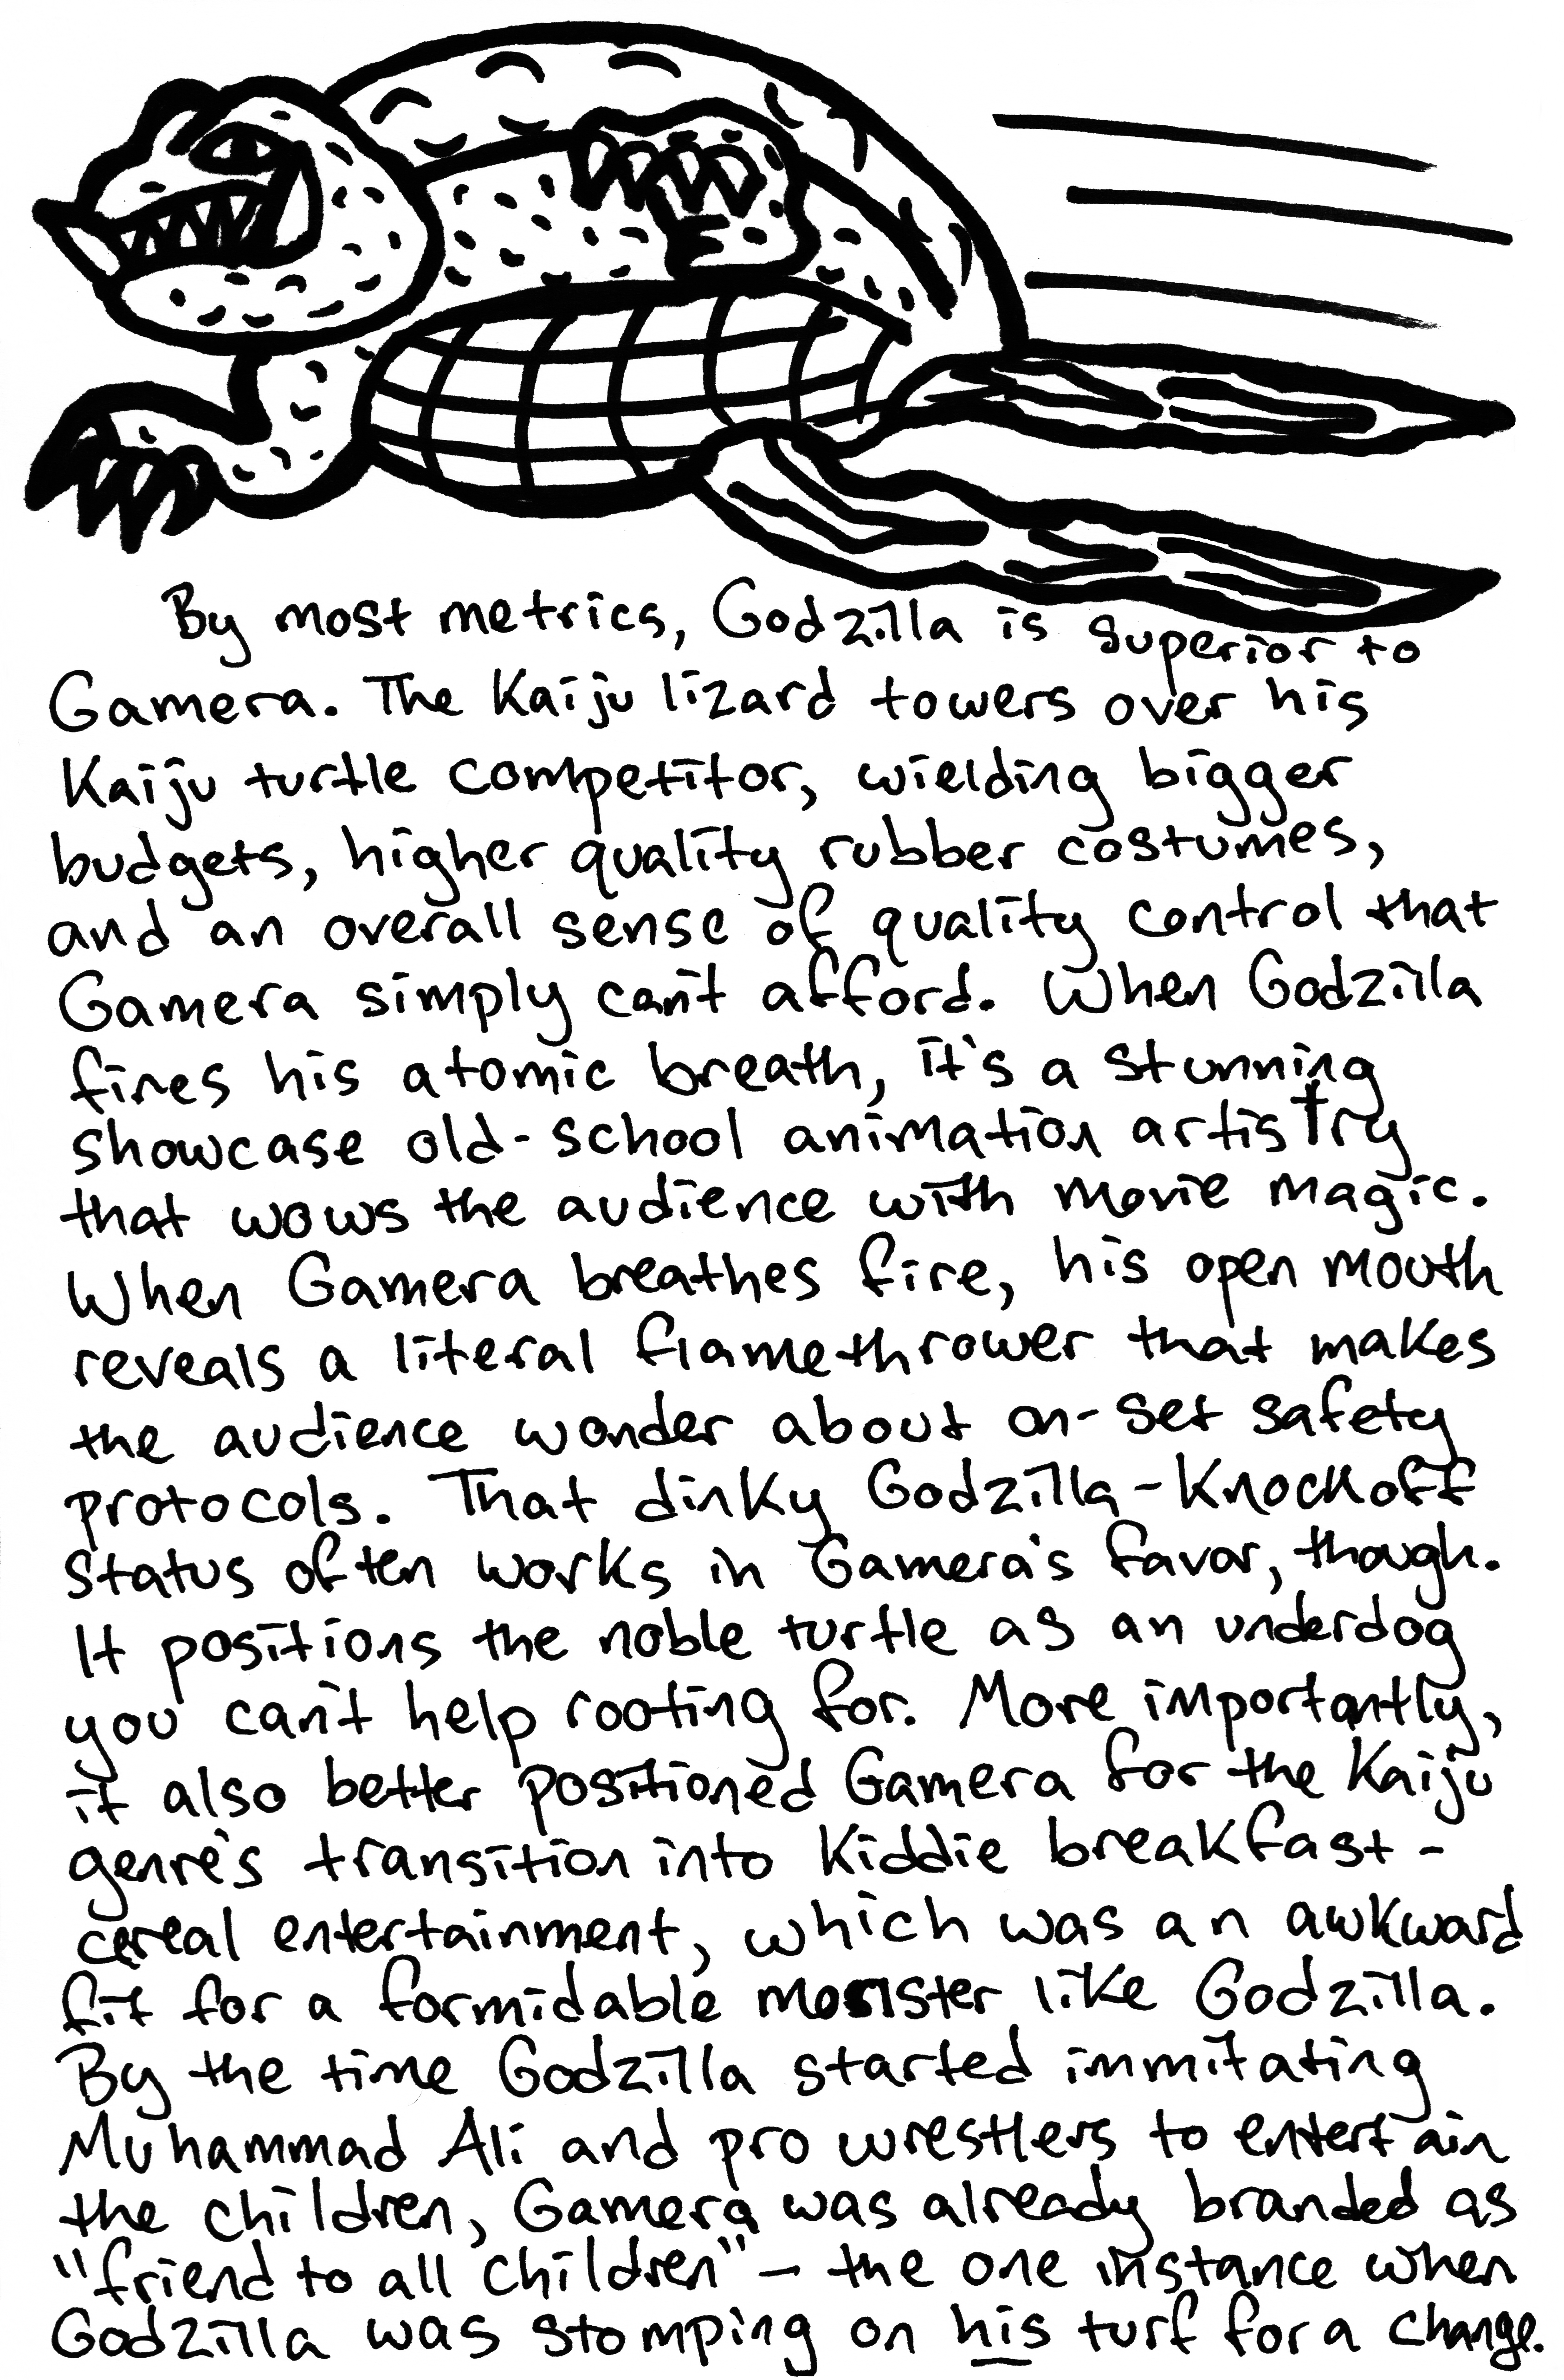 By most metrics, Godzilla is superior to
Gamera. The Kaiju lizard towers over his
Kaiju turtle competitor, wielding bigger
budgets, higher quality rubber costumes,
and an overall sense of quality control that
Gamera simply can't afford. When Godzilla
fires his atomic breath, it's a stunning
showcase old-school animation artistry
that wows the audience with movie magic.
When Gamera breathes fire, his open mouth
reveals a literal flamethrower that makes
the audience wonder about on-set safety
protocols. That dinky Godzilla-Knockoff
status often works in Gamera's favor, though.
It positions the noble turtle as an underdog
you can't help rooting for. More importantly,
it also better positioned Gamera for the Kaiju
genre's transition into Kiddie breakfast-
cereal entertainment, which was an awkward
fit for a formidable monster like Godzilla.
By the time Godzilla started immitating
Muhammad Ali and pro wrestlers to entertain
the children, Gamera was already branded as
"friend to all children" – the one instance when
Godzilla was stomping on his turf for a change.